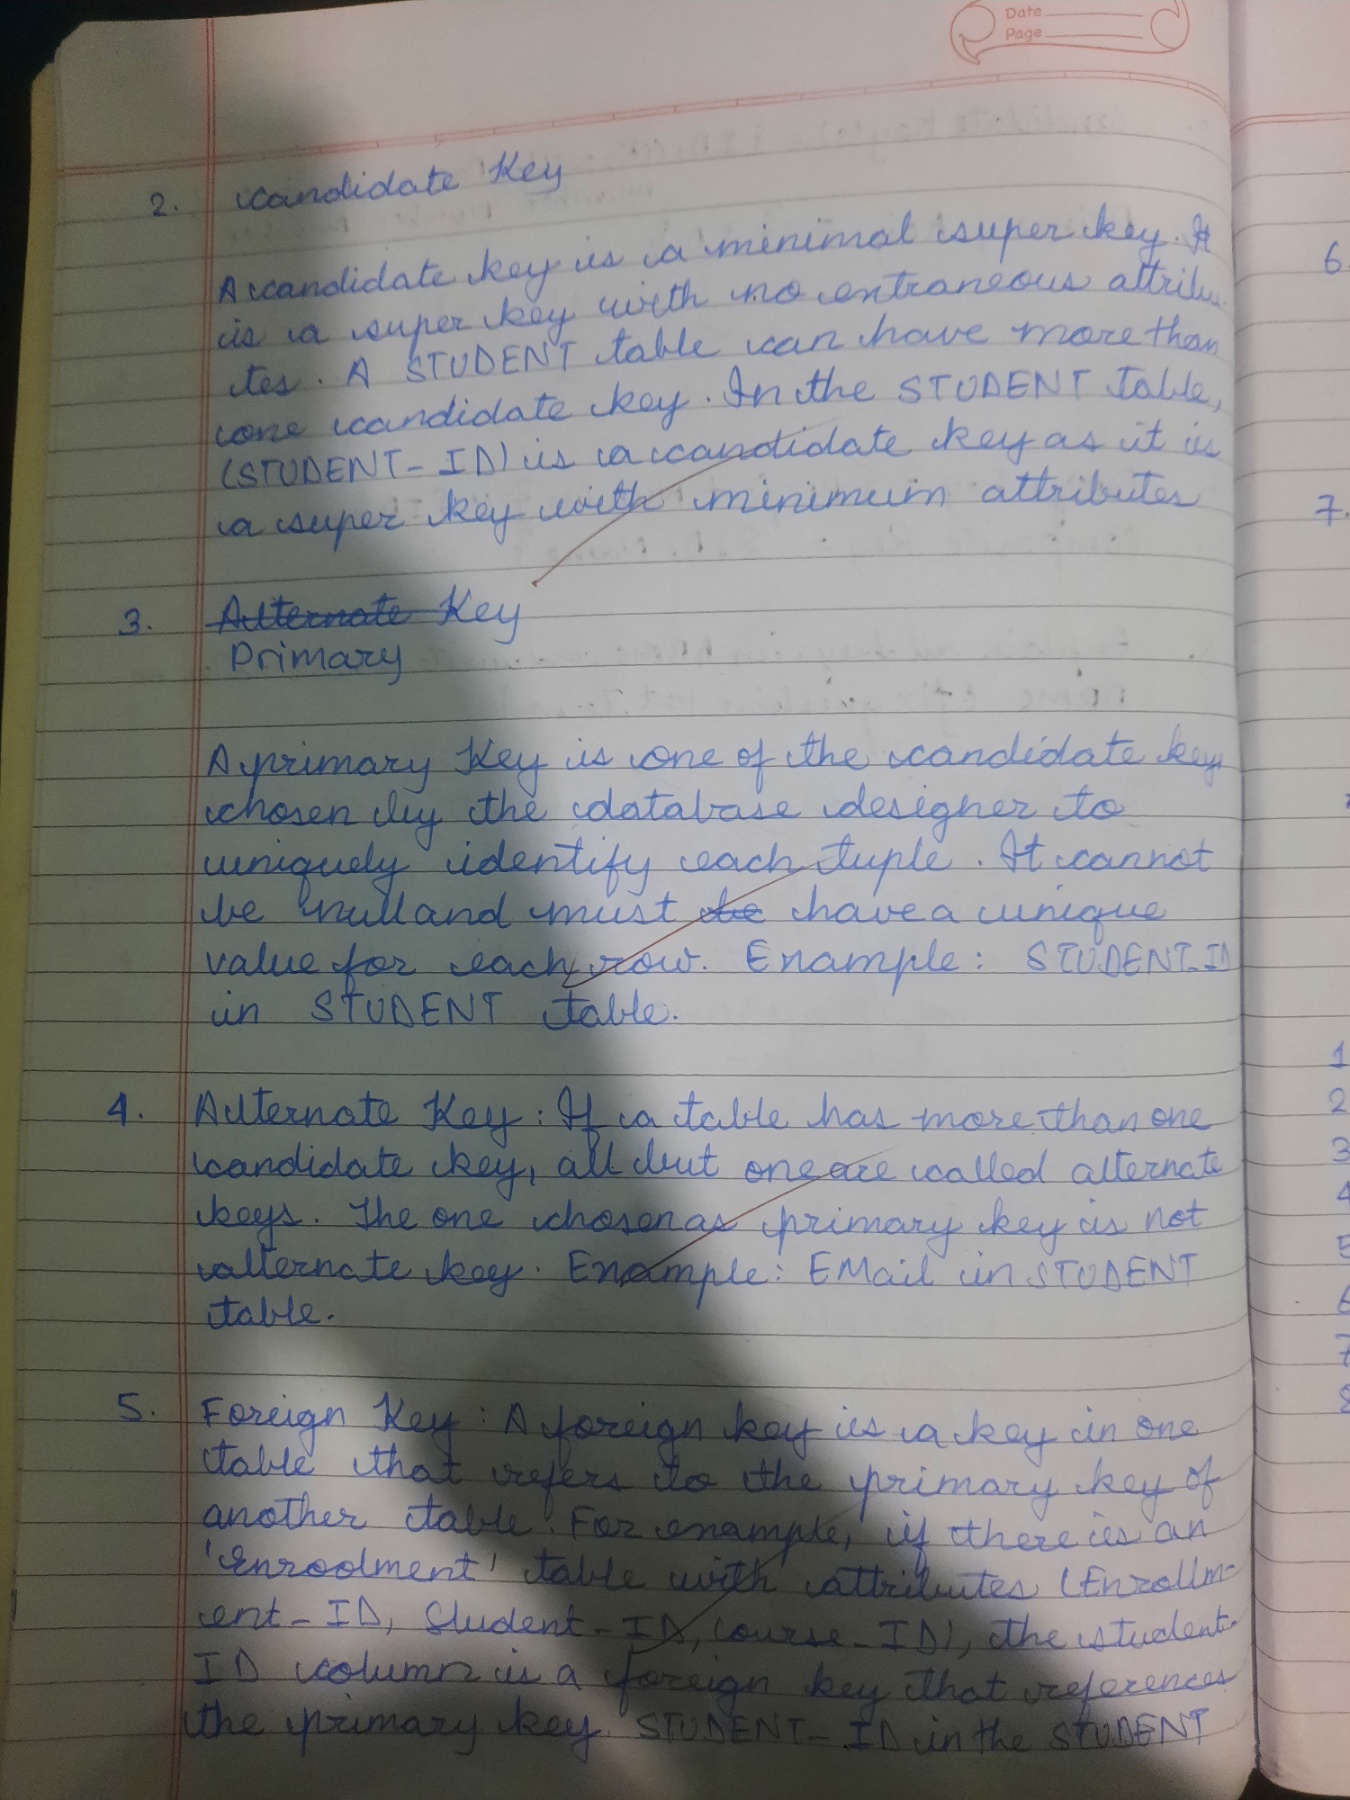 Date
Page
2. Candidate Key
A candidate key is a minimal super key. It
is a super key with no extraneous attribu-
tes. A STUDENT table can have more than
one candidate key. In the STUDENT table,
(STUDENT-ID) is a candidate key as it is
a super key with minimum attributes
3. Alternate Key
Primary
A primary Key is one of the candidate keys
chosen by the database designer to
uniquely identify each tuple. It cannot
be null and must be have a unique
value for each row. Example: STUDENT-ID
in STUDENT table.
4. Alternate Key: If a table has more than one
candidate key, all but one are called alternate
keys. The one chosen as primary key is not
alternate key. Example: EMail in STUDENT
table.
5. Foreign Key: A foreign key is a key in one
table that refers to the primary key of
another table. For example, if there is an
'Enroolment' table with attributes (Enrollm-
ent-ID, Student-ID, Course-ID), the student-
ID column is a foreign key that references
the primary key STUDENT-ID in the STUDENT
6.
7.
1
2
3
4
5
6
7
8